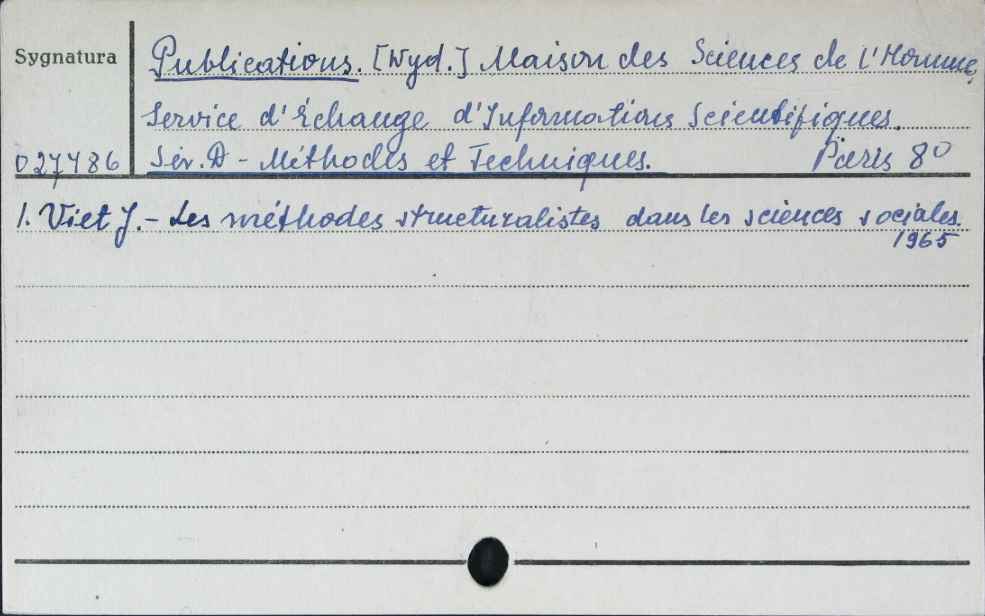 Sygnatura
Publications. [Wyd.] Maison des Sciences de l'Homme,
Service d'Échange d'Informations Scientifiques.
027486 Sér. D - Méthodes et Techniques. Paris 8°
1. Viet J. - Les méthodes structuralistes dans les sciences sociales.
1965